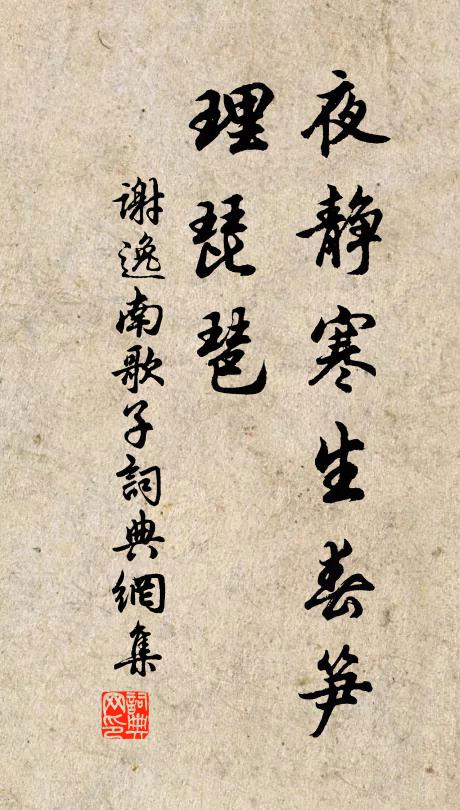 夜静寒生春笋
理琵琶
謝逸南歌子詞典網集
詞典网印